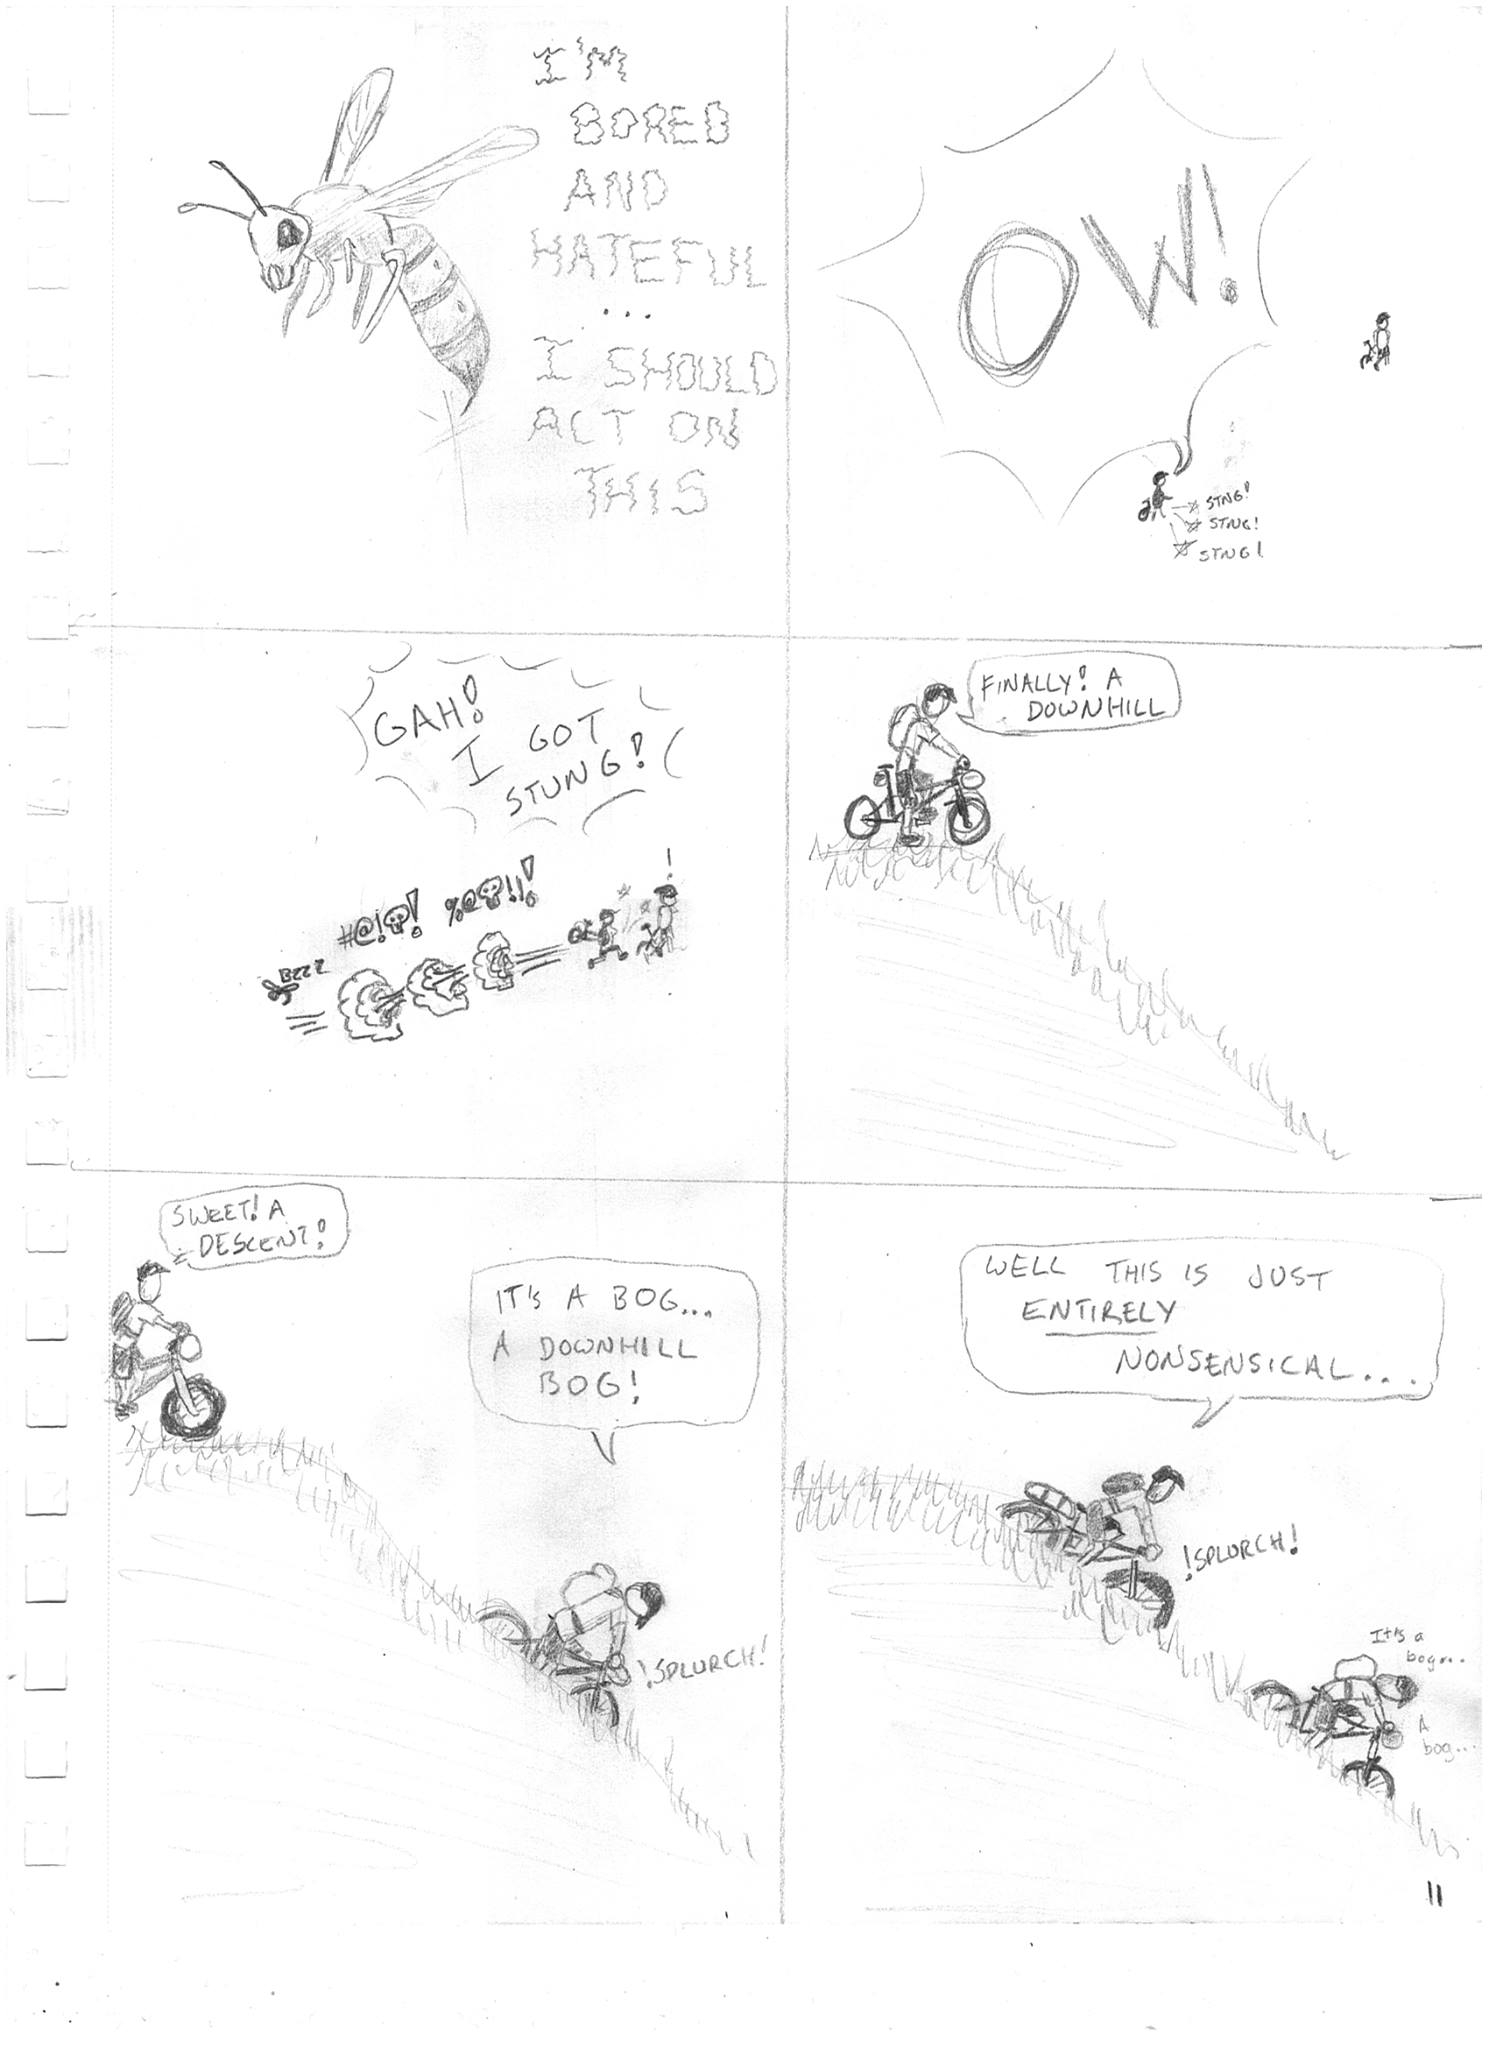 I'M
BORED
AND
HATEFUL
...
I SHOULD
ACT ON
THIS
OW!
STNG!
STNG!
STNG!
GAH!
I GOT
STUNG!
#@!☠! %@☠!!!
BZZZ
!
FINALLY! A
DOWNHILL
SWEET! A
DESCENT!
IT'S A BOG...
A DOWNHILL
BOG!
!SPLURCH!
WELL THIS IS JUST
ENTIRELY
NONSENSICAL....
!SPLURCH!
It's a
bog...
A
bog...
11